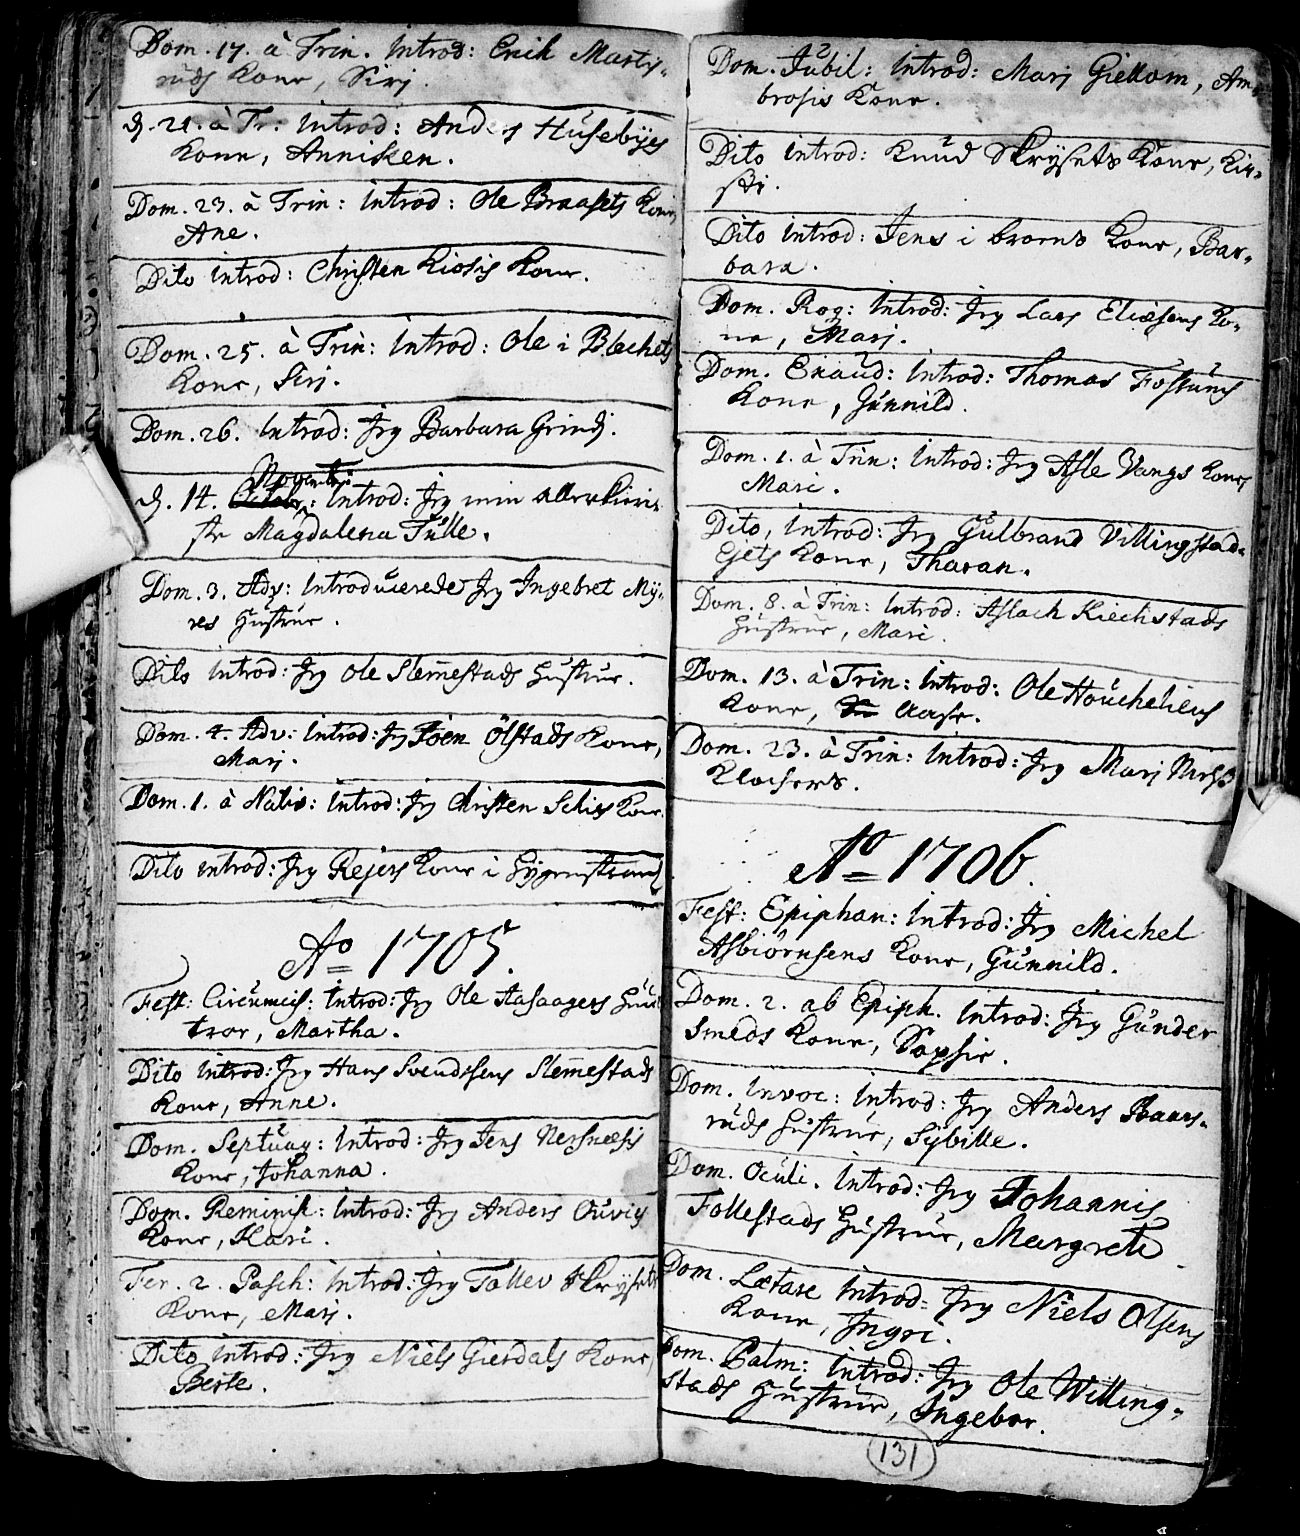 Dom. 17. à Trin. Introd: Erich Martis-
ruds Kone, Siri.
d. 21. à Tr. Introd: Anders Husebÿes
Kone, Annisken.
Dom. 23. à Trin: Introd: Ole Braasets Kone,
Ane.
Dito introd: Christen Kiosis Kone.
Dom. 25. à Trin: Introd: Ole i Blechets
Kone, Siri.
Dom. 26. Introd: Jeg Barbara Grinds.
Novembr
d. 14. Octobr: Introd: Jeg min allerkieri-
ste Magdalena Tülle.
Dom. 3. Adv: Introducerede Jeg Ingebret Mÿ-
res Hustrue.
Dito introd: Jeg Ole Slem̄estads Hustrue.
Dom. 4. Adv: Introd: Jeg Joen Ölstads Kone,
Marj.
Dom. 1. à Nativ: Introd: Jeg Christen Kone
Dito introd: Jeg Rejers Kone i Gÿgrenstrand
Ao 1705.
Fest: Circumcis: Introd: Jeg Ole Aasaagers Hus
troe, Martha.
Dito introd: Jeg Hans Svendsens Slem̄estads
Kone, Anne.
Dom. Septuag: Introd: Jeg Jens Nersnæsis
Kone, Johanna.
Dom. Reminisc: Introd: Jeg Anders Ouvis
Kone, Kari.
Fer. 2. Pasch: Introd: Jeg Tollev Skrÿsets
Kone, Marj.
Dito introd: Jeg Niels Gierdals Kone,
Berte.
Dom. Jubil: Introd: Marj Giellom, Am-
brosis Kone.
Dito introd: Knud Skrÿsets Kone, Kir-
sti.
Dito introd: Jens i Kone, Bar-
bara.
Dom. Rog: Introd: Jeg Lars Eliæsens Ko-
ne, Marj.
Dom. Exaud: Introd: Thomas Fossums
Kone, Gunnild.
Dom. 1. à Trin: Introd: Jeg Asle Vangs Kone,
Mari.
Dito, Introd: Jeg Gulbrand Villingstad-
Ejets Kone, Tharan.
Dom. 8. à Trin: Introd: Aslach Kiechstads
Hustrue, Mari.
Dom. 13. à Trin: Introd: Ole Houcheliens
Kone, Aase.
Dom. 23. à Trin: Introd: Jeg Marj
Klochers.
Ao 1706.
Fest: Epiphan: Introd: Jeg Michel
Asbiörnsens Kone, Gunnild.
Dom. 2. ab Epiph. Introd: Jeg Gunder
Smeds Kone, Sophie.
Dom. Invoc: Introd: Jeg Anders Baars-
ruds Hustrue, Sÿbille.
Dom. Oculi. Introd: Jeg Johannis
Follestads Hustrue, Margrete
Dom. Lætare Introd: Jeg Niels Olsens
Kone, Ingri.
Dom. Palm: Introd: Jeg Ole Willing-
stads Hustrue, Ingebor.
131